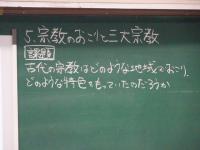 5.宗教のおこりと三大宗教
課題
古代の宗教はどのような地域でおこり、
どのような特色をもっていたのだろうか